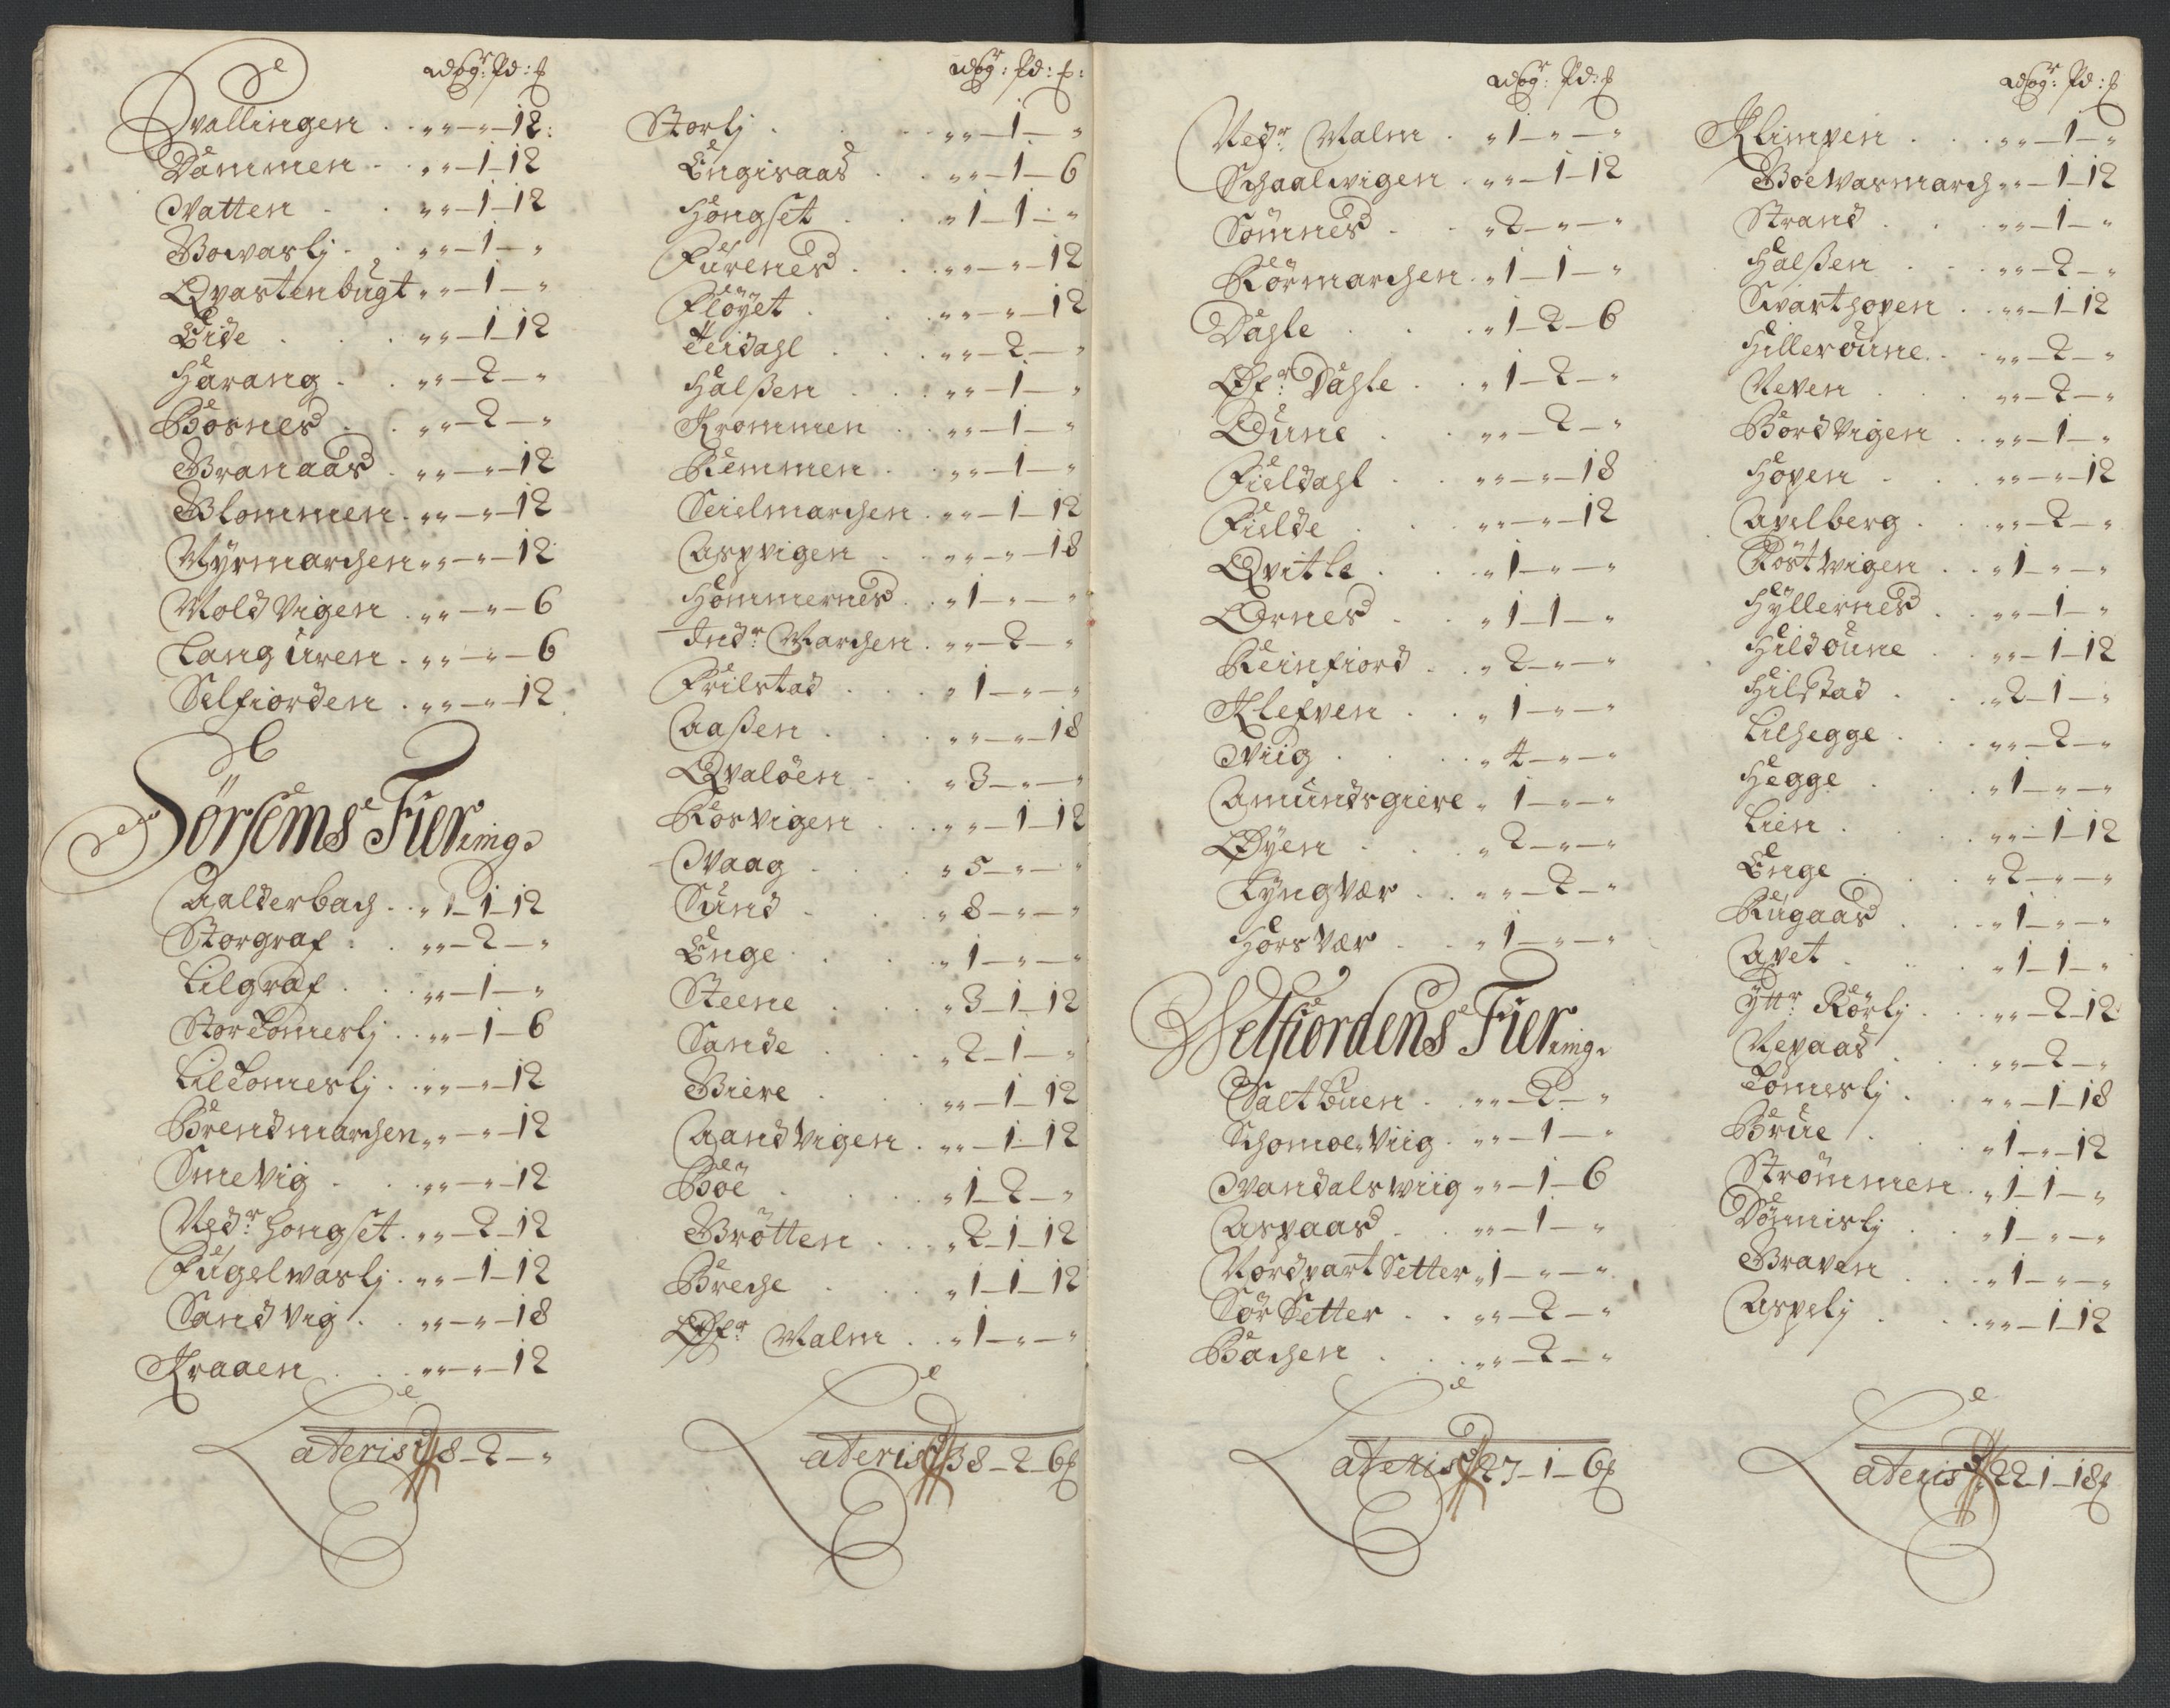 Wog: Pd: ℔
Qvallingen . . " " — " — 12:
Dammen . . " " — 1 — 12
Vatten . . " " — 1 — 12
Bowaslj . . " " — 1 — "
Qvastenbugt " " — 1 — "
Eide . . " " — 1 — 12
Harang . . " " — 2 — "
Bosnes . . " " — 2 — "
Branaas . " " — " — 12
Blommen . " " — " — 12
Myrmarchen " " — " — 12
Mold Vigen . " " — " — 6
Lang uren . " " — " — 6
Selfiorden . " " — " — 12
Sörsems Fiering:
Aalderbach . . " 1 — 1 — 12
Storgraf . . " " — 2 — "
Lilgraf . . " " — 1 — "
Stor Tomeslj . . " " — 1 — 6
Lil Tomeslj . . " " — " — 12
Brendmarchen " " — " — 12
Smevig . . " " — " — 12
Nedr Hongset . " " — 2 — 12
Fugelwaslj . " " — 1 — 12
Sandvig . . " " — " — 18
Kraaen . . " " — " — 12
Lateris 18 — 2 — "
Wog: Pd: ℔:
Storlj . . " " — 1 — "
Engisaas . . " " — 1 — 6
Hongset . . " 1 — 1 — "
Furenes . . " " — " — 12
Flöyet . . " " — " — 12
Teidahl . . " " — 2 — "
Halßen . . " " — 1 — "
Krommen . . " " — 1 — "
Remmen . . " " — 1 — "
Seielmarchen . " " — 1 — 12
Aspvigen . . " " — " — 18
Hommernes . . " 1 — " — "
Indr Marchen . " " — 2 — "
Frilstad . . " 1 — " — "
Aaßen . . " " — " — 18
Qvalöen . . " 3 — " — "
Rosvigen . . " " — 1 — 12
Vaag . . " 5 — " — "
Sund . . " 8 — " — "
Enge . . " 1 — " — "
Steene . . " 3 — 1 — 12
Sande . . " 2 — 1 — "
Biere . . " " — 1 — 12
Aandvigen . " " — 1 — 12
Böe . . " 1 — 2 — "
Brötten . . " 2 — 1 — 12
Breche . . " 1 — 1 — 12
Öfr Malm . . " 1 — " — "
Lateris 38 — 2 — 6 ℔
Wog: Pd: ℔
Nedr Malm . " 1 — " — "
Schaalwigen . " " — 1 — 12
Sömnes . . " 2 — " — "
Rörmarchen . " 1 — 1 — "
Dahle . . " 1 — 2 — 6
Öfr Dahle . . " 1 — 2 — "
Dune . . " " — 2 — "
Fieldahl . . " " — " — 18
Fielde . . " " — " — 12
Qvitle . . " 1 — " — "
Ornes . . " 1 — 1 — "
Reinfiord . . " 2 — " — "
Klefven . . " 1 — " — "
Viig . . " 4 — " — "
Amundsgiere " 1 — " — "
Øyen . . " 2 — " — "
Lyngvær . . " " — 2 — "
Horsvær . . " 1 — " — "
Welfiordens Fiering:
Saltbuen . " " — 2 — "
Schomoe Viig . " " — 1 — "
Vandalswiig " " — 1 — 6
Aspaas . . " " — 1 — "
Nordpart Setter " 1 — " — "
Sör Setter . . " " — 2 — "
Bachen . . " " — 2 — "
Lateris 27 — 1 — 6 ℔
Wog: Pd: ℔
Klimpen . . " " — 1 — "
Boe Vasmarch " " — 1 — 12
Strand . . " " — 1 — "
Halßen . . " " — 2 — "
Svarthopen . . " " — 1 — 12
Hilleroune . . " " — 2 — "
Neven . . " " — 2 — "
Bordvigen . . " " — 1 — "
Hopen . . " " — " — 12
Avelberg . . " " — 2 — "
Röstwigen . . " 1 — " — "
Hyllernes . . " " — 1 — "
Hildoune . . " " — 1 — 12
Hilstad . . " 2 — 1 — "
Lilhegge . . " " — 2 — "
Hegge . . " 1 — " — "
Lien . . " " — 1 — 12
Enge . . " 2 — " — "
Rugaas . . " 1 — " — "
Avet . . " 1 — 1 — "
Yttr Rörlj . . " " — 2 — 12
Nepaas . . " " — 2 — "
Tömerlj . . " " — 1 — 18
Brue . . " 1 — " — 12
Strömmen . . " 1 — 1 — "
Dömislj . . " 1 — " — "
Braven . . " 1 — " — "
Aspelj . . " " — 1 — 12
Lateris 22 — 1 — 18 ℔